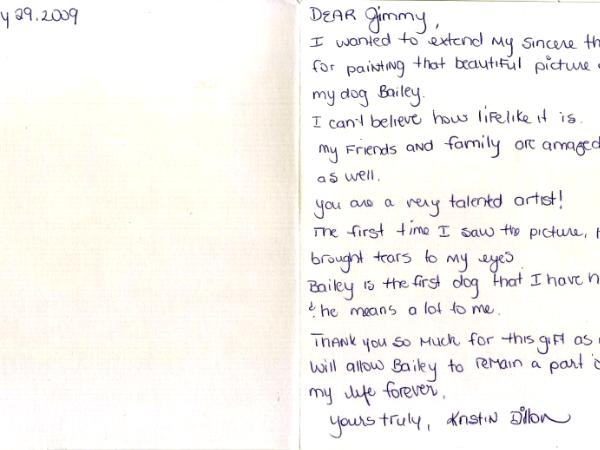 y 29.2009
DEAR Jimmy,
I wanted to extend my sincere th
for painting that beautiful picture
my dog Bailey.
I can't believe how lifelike it is.
my Friends and family are amazed
as well.
you are a very talented artist!
The first time I saw the picture,
brought tears to my eyes.
Bailey is the first dog that I have h
& he means a lot to me.
THANK you so much for this gift as
will allow Bailey to remain a part
my life forever.
yours truly, Kristin Dillon